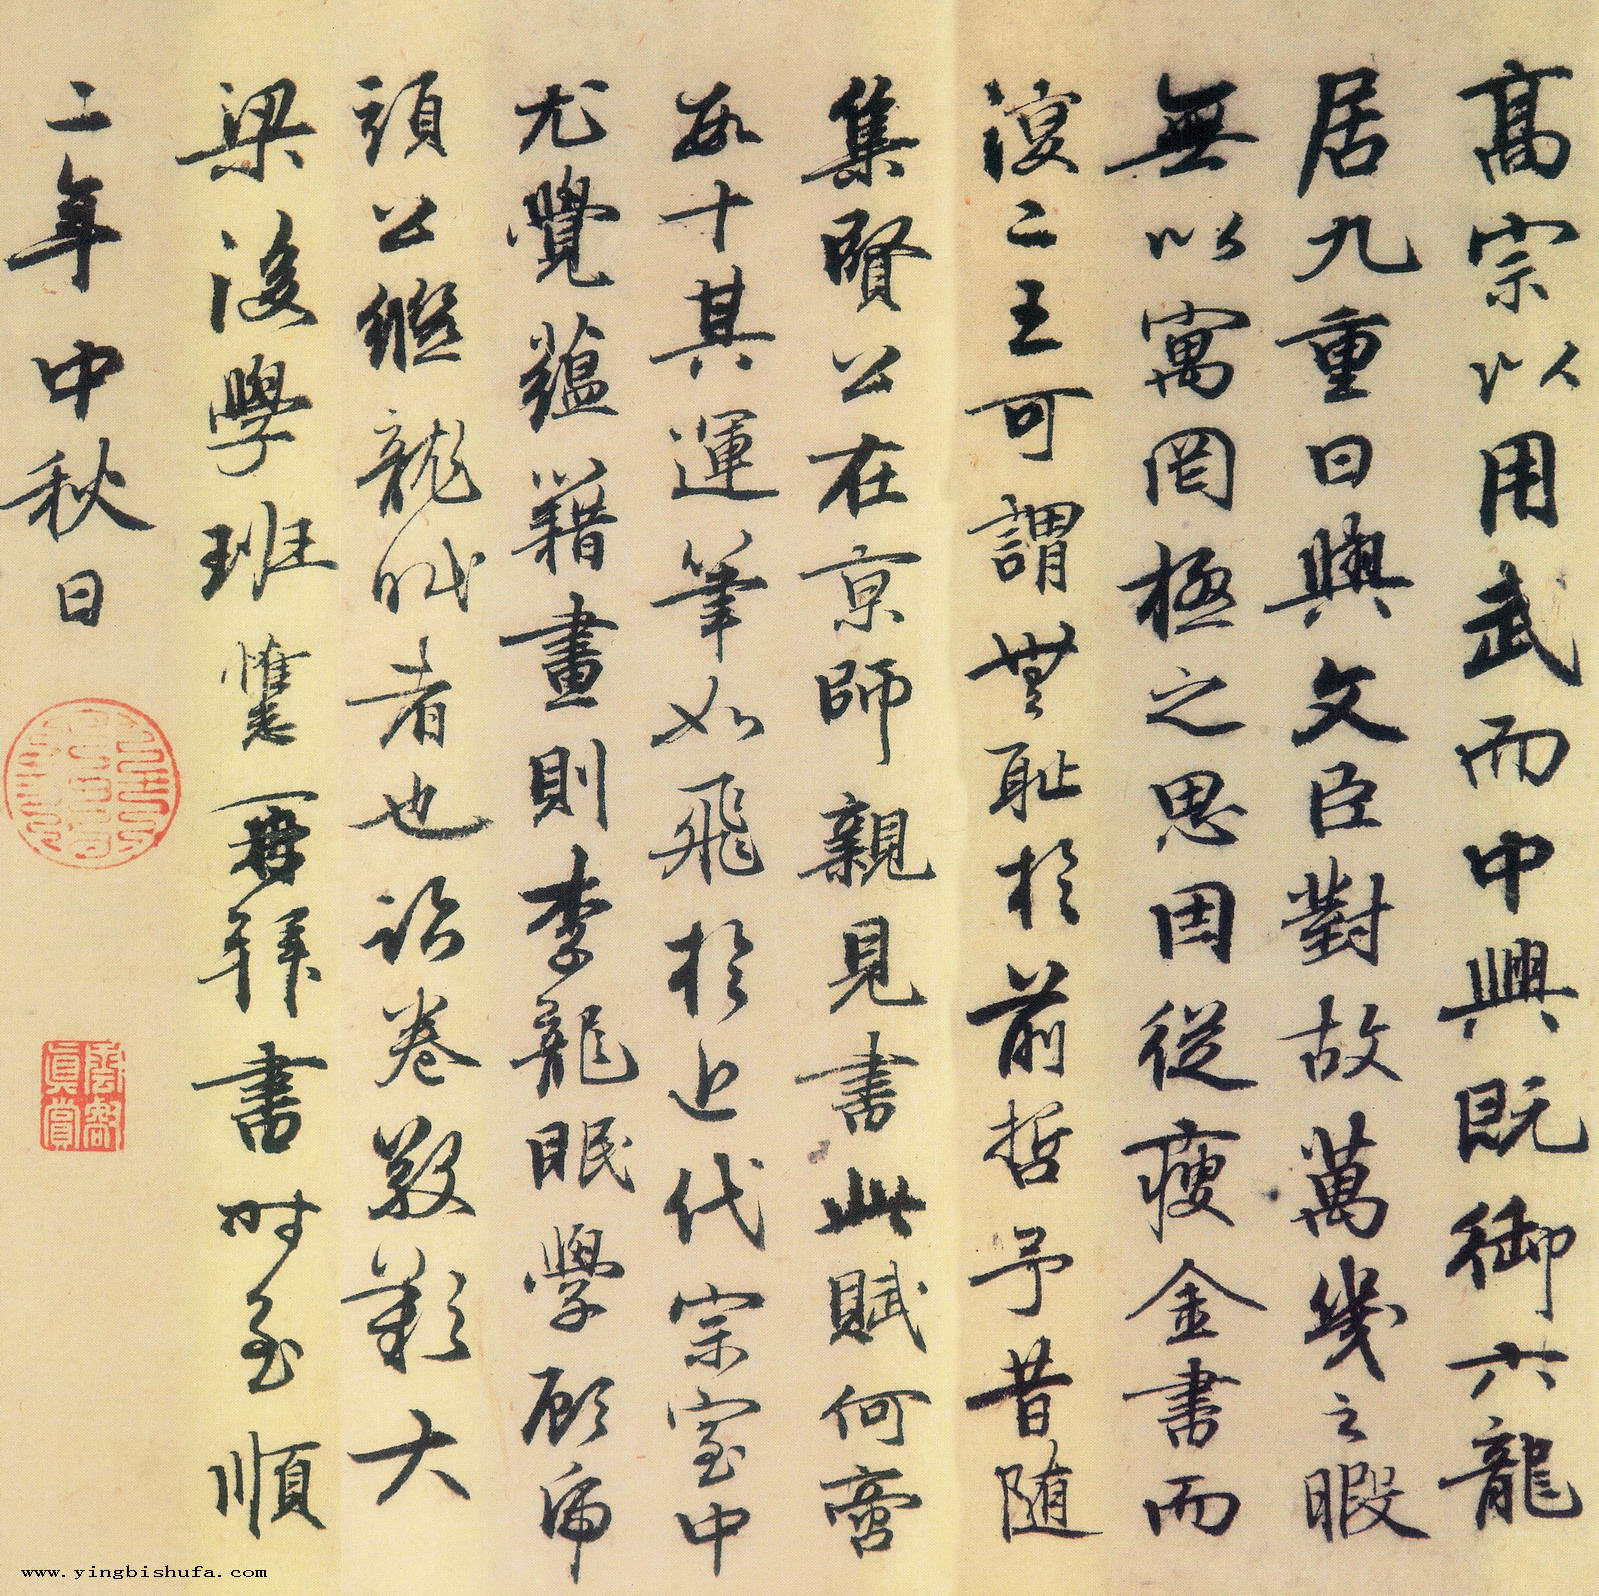 高宗以用武而中興既御六龍
居九重日與文臣對故萬幾之暇
無以寓罔極之思因從瘦金書而
復二王可謂無恥於前哲予昔隨
集賢公在京師親見書此賦何啻
數十其運筆如飛於近代宗室中
尤覺蘊籍畫則李龍眠學顧虎
頭公縱龍眠者也詒卷敬歎大
梁後學班惟志再拜書時至順
二年中秋日
真賞
www.yingbishufa.com